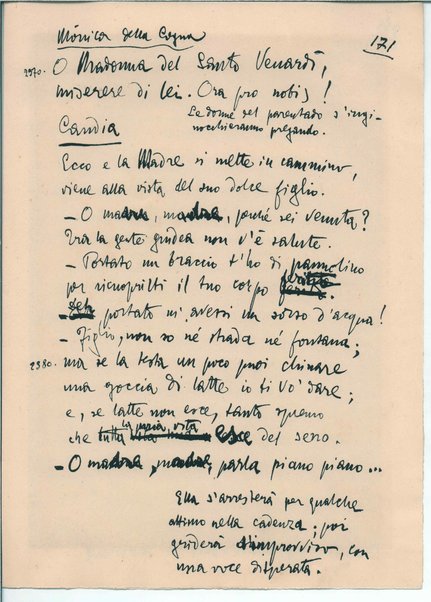 Mònica della Cogna
171
2370. O Madonna del Santo Venardì,
miserere di lei. Ora pro nobis!
Le donne del parentado s'ingi-
nocchieranno pregando.
Candia
Ecco e la Madre si mette in cammino,
viene alla vista del suo dolce figlio.
– O madre, madre, perché sei venuta?
Tra la gente giudea non v'è salute.
– Portato un braccio t'ho di pannolino
per ricoprirti il tuo corpo ferito.
– portato m'avessi un sorso d'acqua!
– Figlio, non so né strada né fontana;
2380. ma se la testa un poco puoi chinare
una goccia di latte io ti vo' dare;
e, se latte non esce, tanto spremo
la mia vita
che tutta esce del seno.
– O madre, madre, parla piano piano...
Ella s'arresterà per qualche
attimo nella cadenza; poi
griderà d'improvviso, con
una voce disperata.